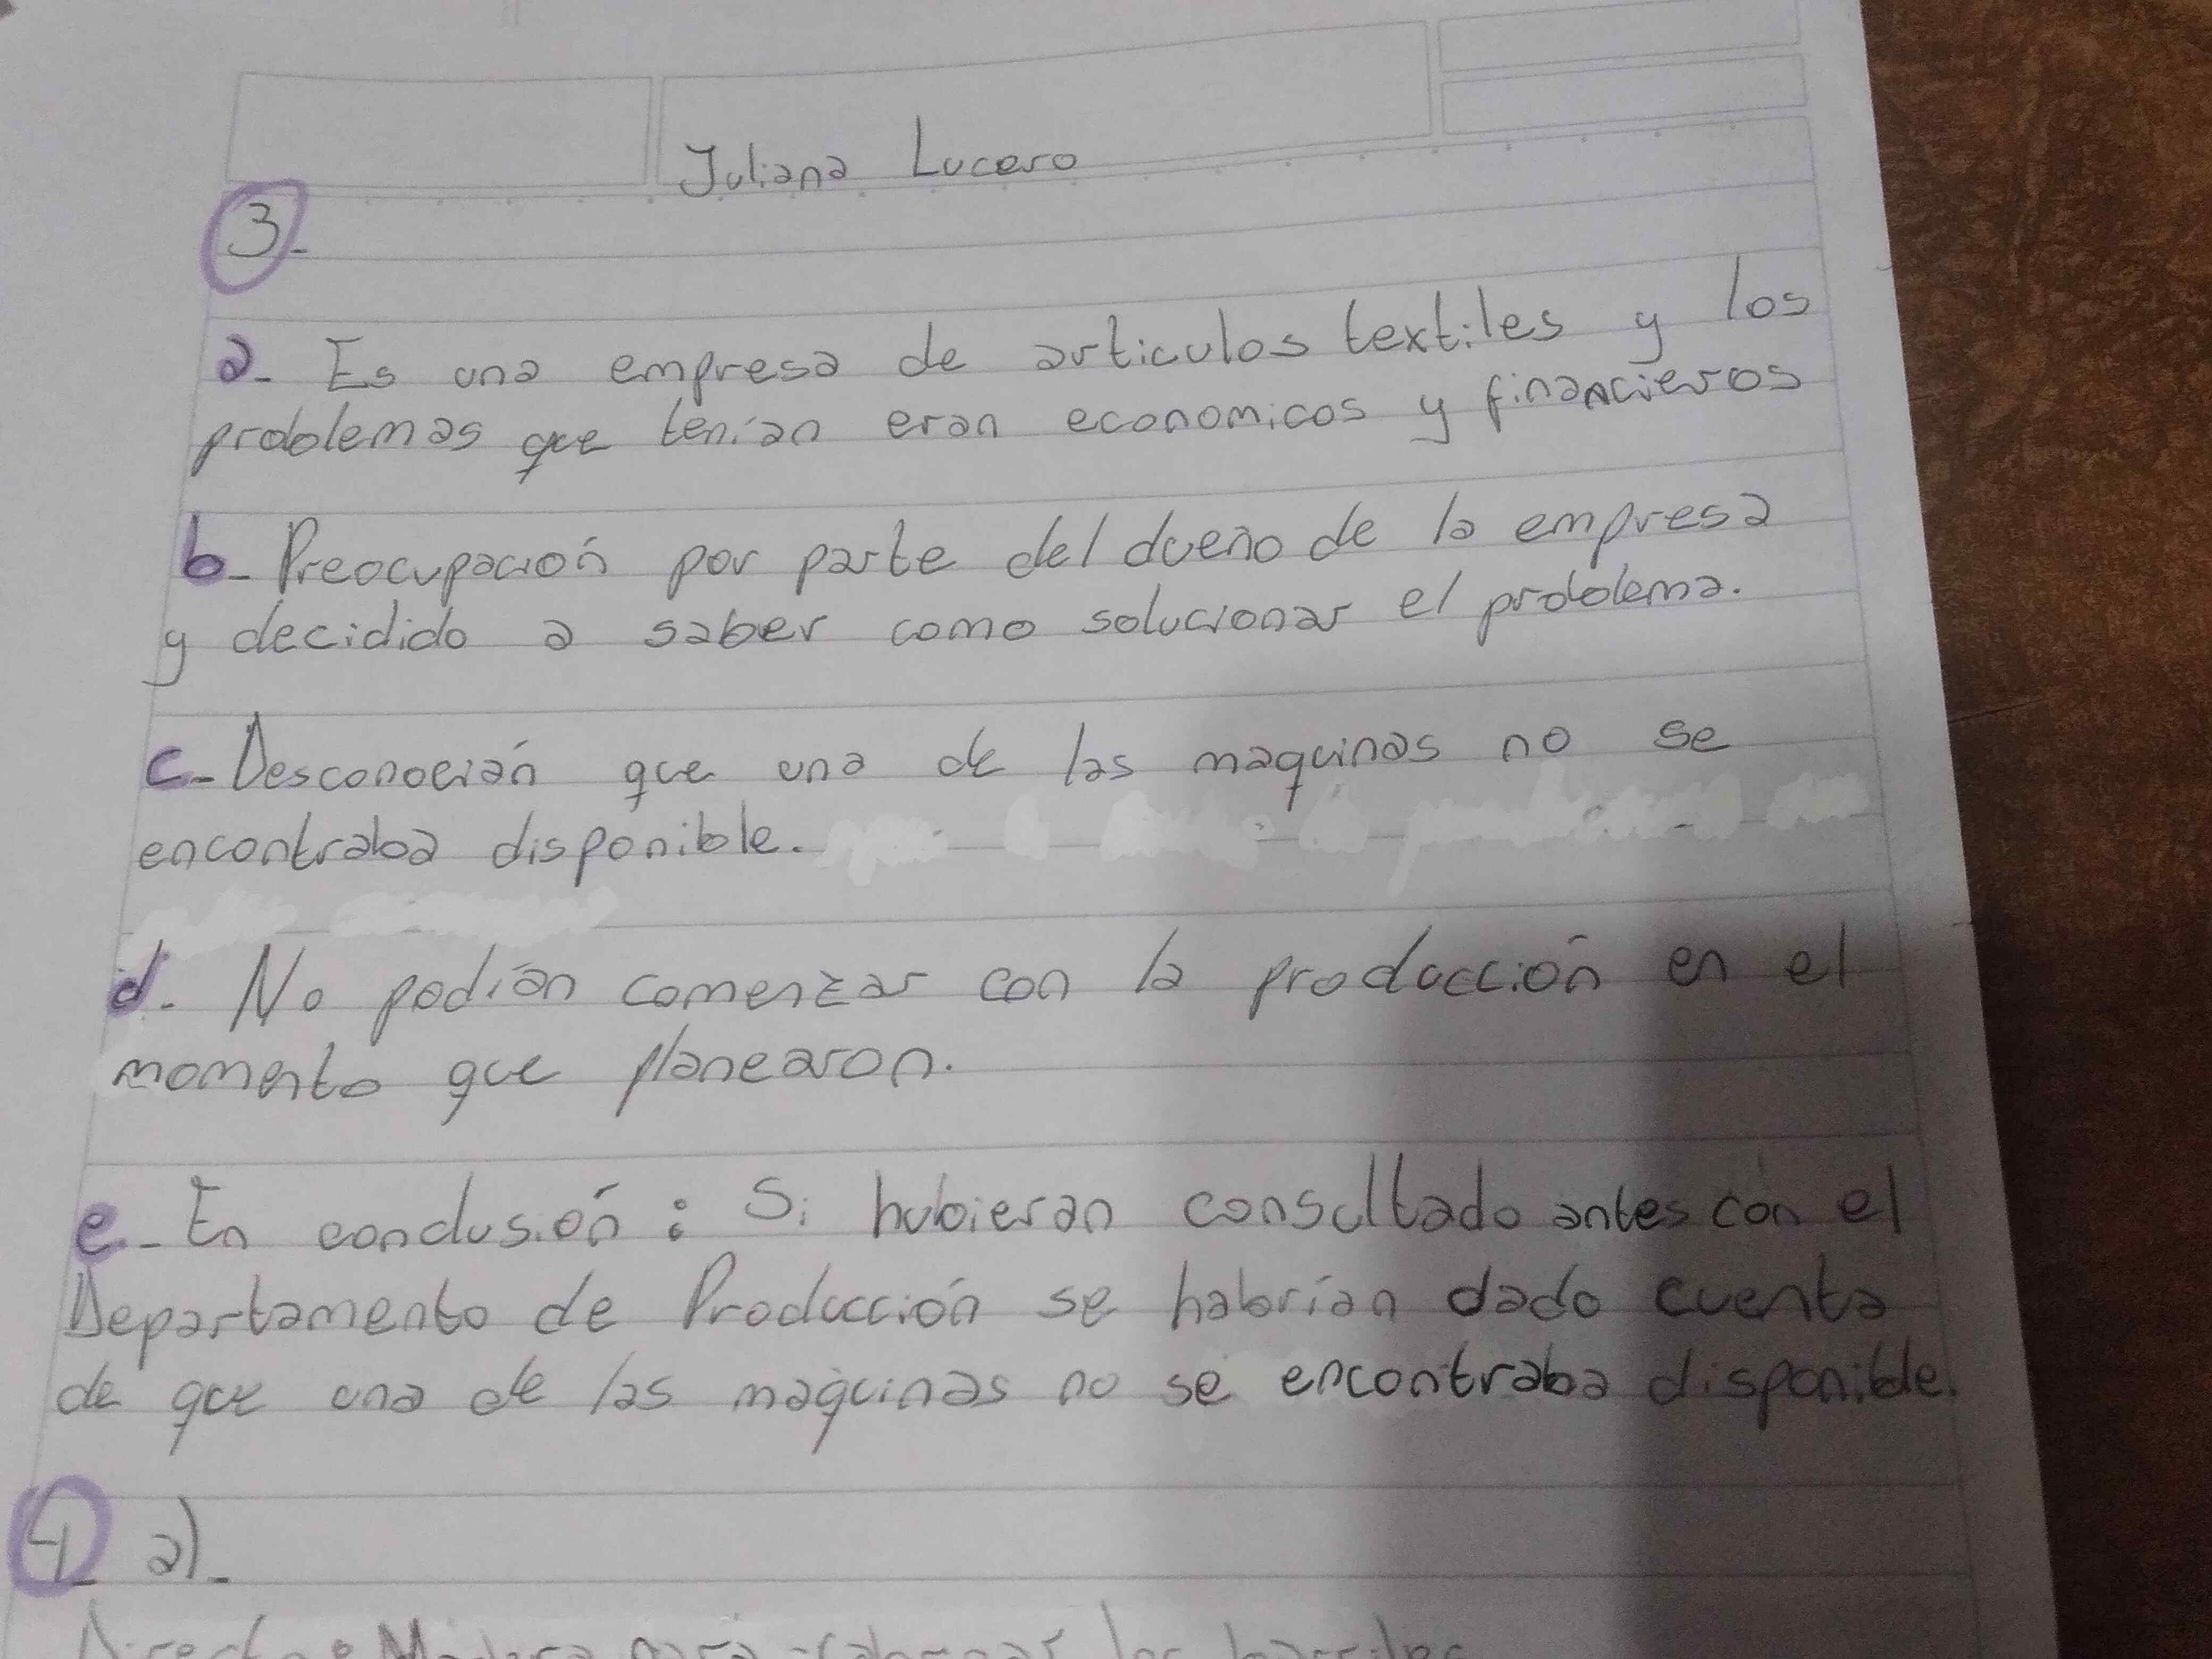 Juliana Lucero
3-
a- Es una empresa de articulos textiles y los
problemas que tenían eran economicos y financieros
b- Preocupación por parte del dueño de la empresa
y decidido a saber como solucionar el problema.
c- Desconocián que una de las maquinas no se
encontraba disponible.
d. No podían comenzar con la producción en el
momento que planearon.
e- En conclusión: Si hubieran consultado antes con el
Departamento de Producción se habrían dado cuenta
de que una de las maquinas no se encontraba disponible.
4- a)-
Madera para los barriles